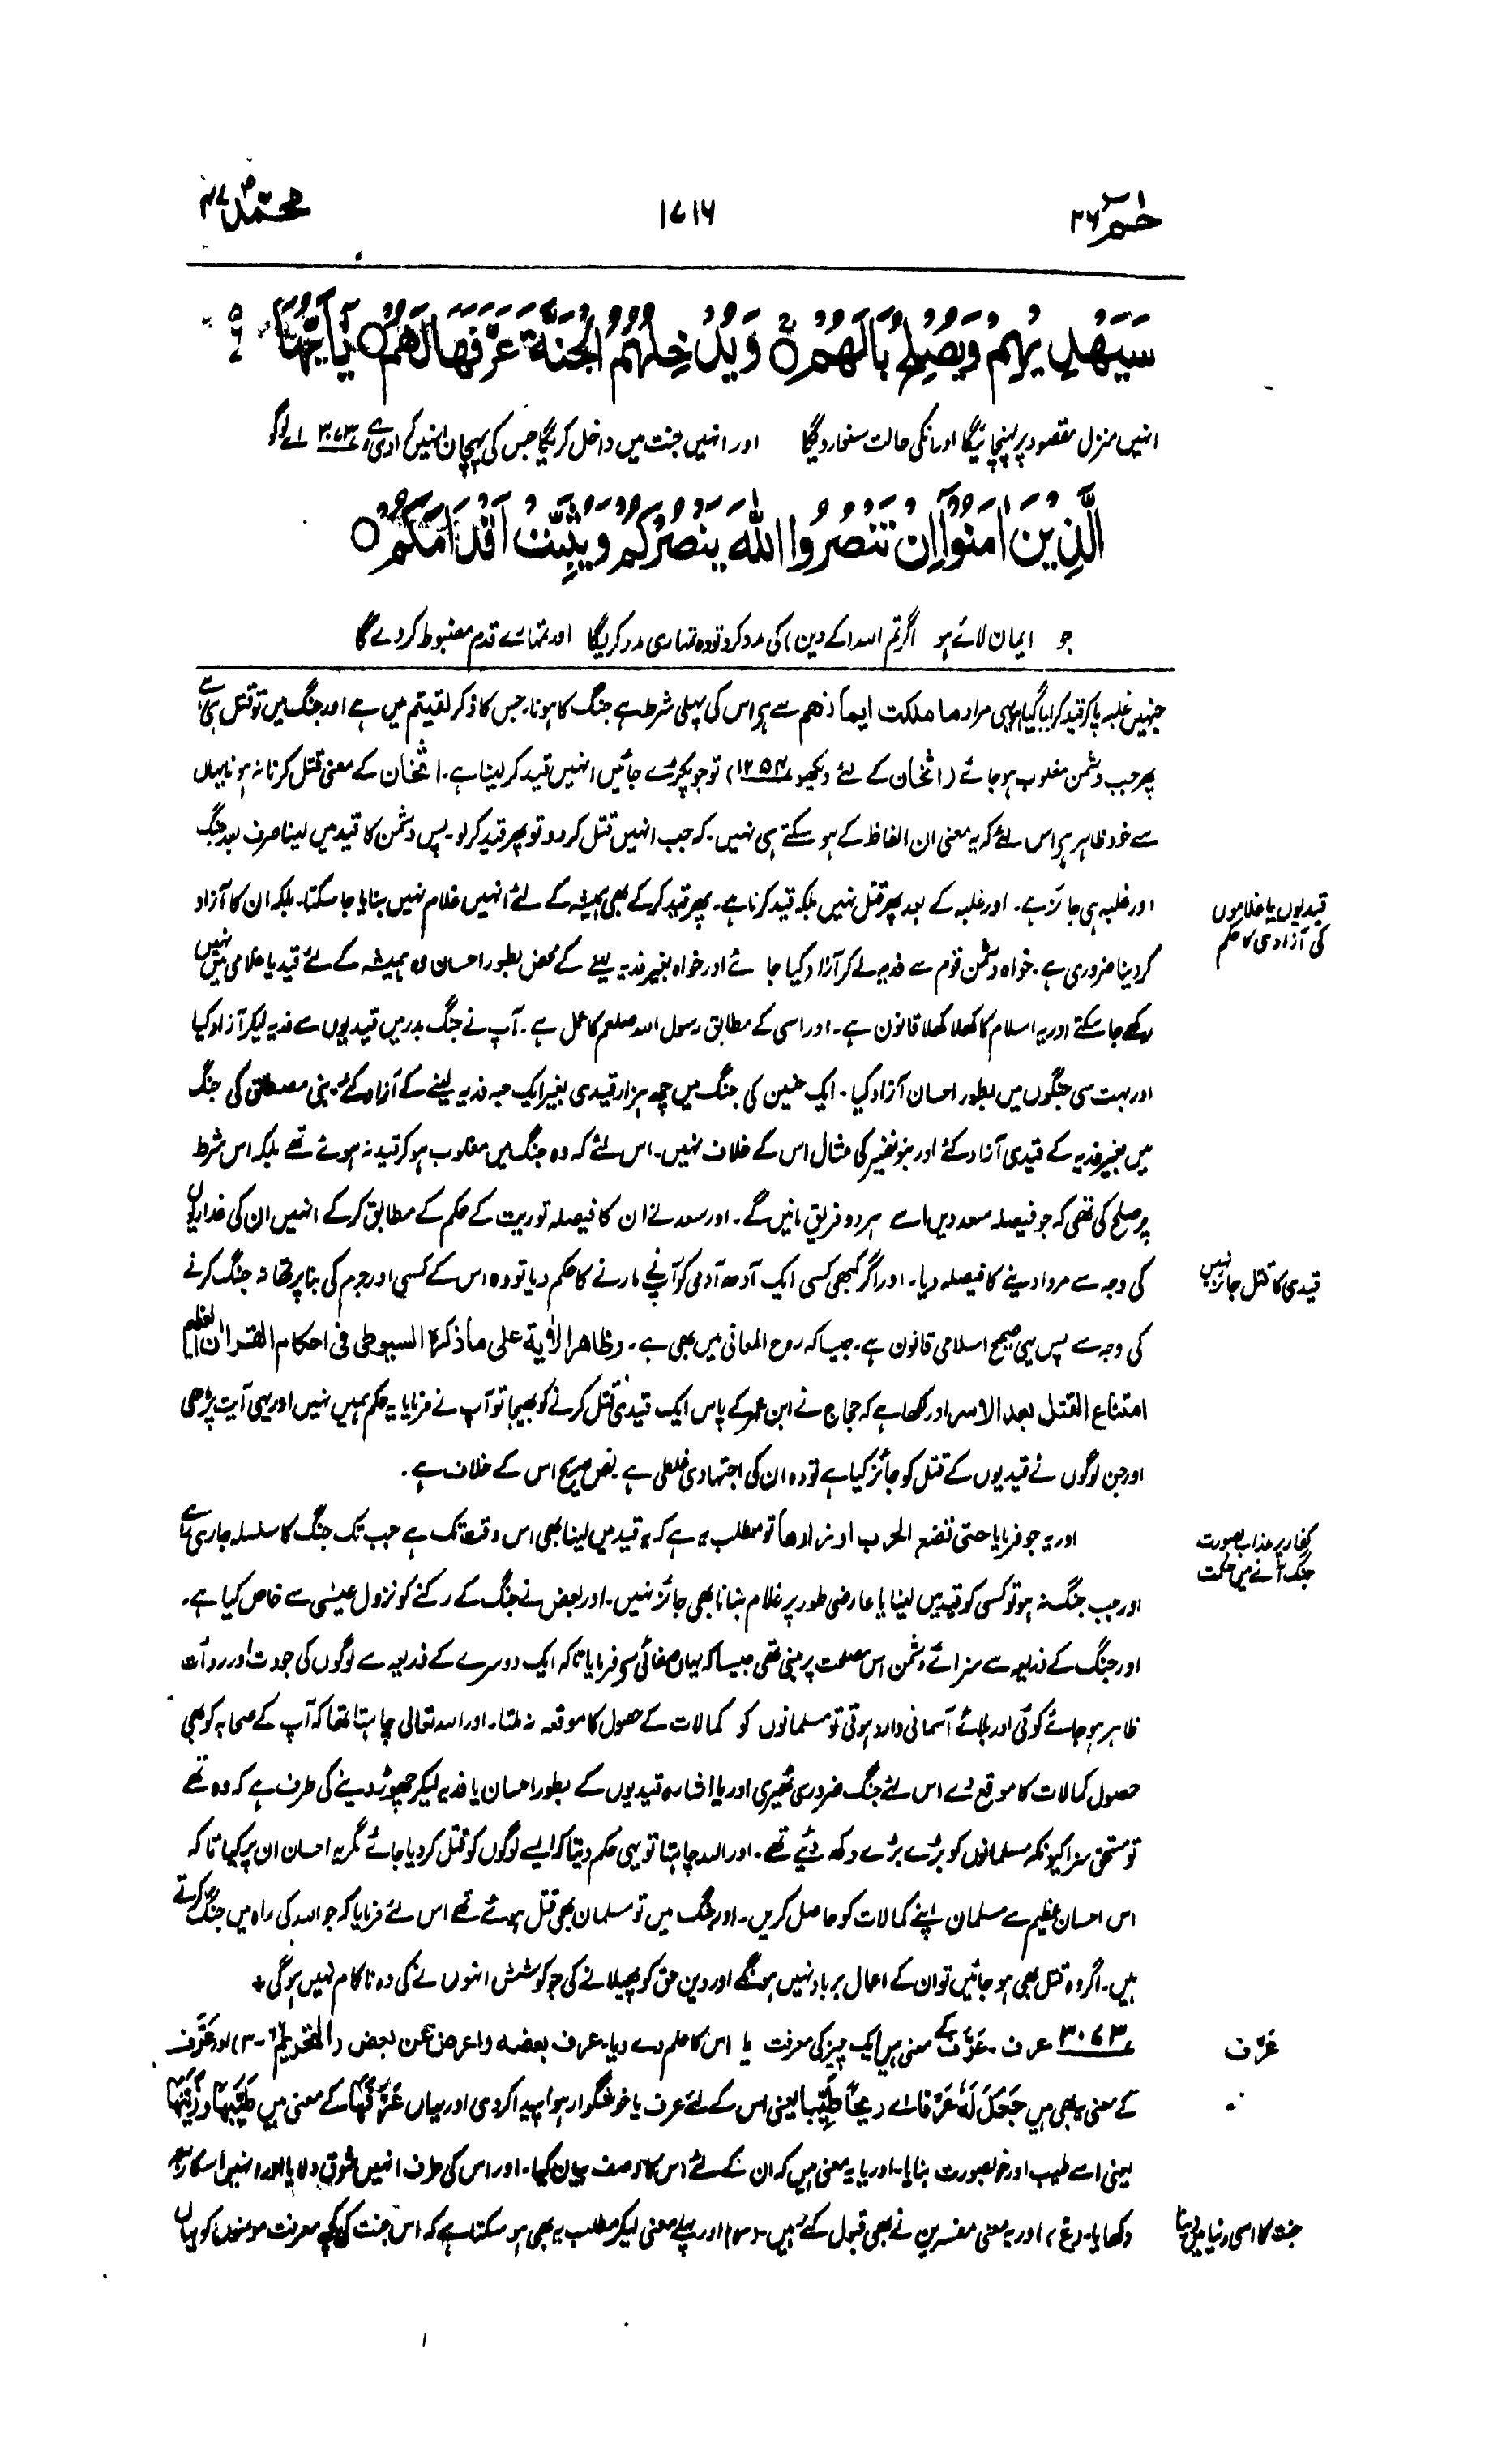 حٰمٓ ۲۶
۱۷۱۶
محمّد ۴۷
سَيَهْدِيْهِمْ وَيُصْلِحُ بَالَهُمْ ○ وَيُدْخِلُهُمُ الْجَنَّةَ عَرَّفَهَا لَهُمْ ○ يٰۤاَيُّهَا
انہیں منزل مقصود پر پہنچائیگا اور انکی حالت سنوار دیگا اور انہیں جنت میں داخل کریگا جس کی پہچان انہیں کرادی ہے ۳۰۷۳ اے لوگو
الَّذِيْنَ اٰمَنُوْۤا اِنْ تَنْصُرُوا اللّٰهَ يَنْصُرْكُمْ وَيُثَبِّتْ اَقْدَامَكُمْ ○
جو ایمان لائے ہو اگر تم اللہ (کے دین) کی مدد کرو تو وہ تمہاری مدد کریگا اور تمہارے قدم مضبوط کر دے گا
جنہیں غلبہ پا کر قید کر لیا گیا ہو یہی مراد ما ملکت ایمانهم سے ہے اس کی پہلی شرط ہے جنگ کا ہونا، جس کا ذکر لقیتم میں ہے اور جنگ میں تو قتل ہی ہے
پھر جب دشمن مغلوب ہو جائے (اثخان کے لئے دیکھو ۱۲۵۴) تو جو پکڑے جائیں انہیں قید کر لینا ہے۔ اثخان کے معنی قتل کرنا نہ ہونا یہاں
سے خود ظاہر ہے اس لئے کہ یہ معنی ان الفاظ کے ہو سکتے ہی نہیں۔ کہ جب انہیں قتل کر دو تو پھر قید کر لو۔ پس دشمن کا قید میں لینا صرف بعد جنگ
اور غلبہ ہی جائز ہے۔ اور غلبہ کے بعد پھر قتل نہیں بلکہ قید کرنا ہے۔ پھر قید کر کے بھی ہمیشہ کے لئے انہیں غلام نہیں بنایا جا سکتا۔ بلکہ ان کا آزاد
قیدیوں یا غلاموں
کی آزادی کا حکم
کر دینا ضروری ہے۔ خواہ دشمن قوم سے فدیہ لے کر آزاد کیا جائے اور خواہ بغیر فدیہ لینے کے محض بطور احسان وہ ہمیشہ کے لئے قید یا غلامی میں نہیں
رکھے جا سکتے اور یہ اسلام کا کھلا کھلا قانون ہے۔ اور اسی کے مطابق رسول اللہ صلعم کا عمل ہے۔ آپ نے جنگ بدر میں قیدیوں سے فدیہ لیکر آزاد کیا
اور بہت سی جنگوں میں بطور احسان آزاد کیا۔ ایک حنین کی جنگ میں چھ ہزار قیدی بغیر ایک حبہ فدیہ لینے کے آزاد کئے۔ بنی مصطلق کی جنگ
میں بغیر فدیہ کے قیدی آزاد کئے اور بنو نضیر کی مثال اس کے خلاف نہیں۔ اس لئے کہ وہ جنگ میں مغلوب ہو کر قید نہ ہوئے تھے بلکہ اس شرط
پر صلح کی تھی کہ جو فیصلہ سعد دیں اسے ہر دو فریق مانیں گے۔ اور سعد نے ان کا فیصلہ توریت کے حکم کے مطابق کر کے انہیں ان کی غداریوں
کی وجہ سے مروا دینے کا فیصلہ دیا۔ اور اگر کبھی کسی ایک آدھ آدمی کو آپنے مارنے کا حکم دیا تو وہ اس کے کسی اور جرم کی بنا پر تھا نہ جنگ کرنے
قیدی کا قتل جائز نہیں
کی وجہ سے پس یہی صحیح اسلامی قانون ہے۔ جیسا کہ روح المعانی میں بھی ہے۔ وظاهر الاٰية على ما ذكره السيوطى فى احكام القراٰن العظيم
امتناع القتل بعد الاسر اور لکھا ہے کہ حجاج نے ابن عمر کے پاس ایک قیدی قتل کرنے کو بھیجا تو آپ نے فرمایا یہ حکم ہمیں نہیں اور یہی آیت پڑھی
اور جن لوگوں نے قیدیوں کے قتل کو جائز کیا ہے تو وہ ان کی اجتہادی غلطی ہے نص صریح اس کے خلاف ہے۔
اور یہ جو فرمایا حتی تضع الحرب اوزارها تو مطلب یہ ہے کہ یہ قید میں لینا بھی اس وقت تک ہے جب تک جنگ کا سلسلہ جاری ہے
کفار پر عذاب بصورت
جنگ آنے میں حکمت
اور جب جنگ نہ ہو تو کسی کو قید میں لینا یا عارضی طور پر غلام بنانا بھی جائز نہیں۔ اور بعض نے جنگ کے رکنے کو نزول عیسٰی سے خاص کیا ہے۔
اور جنگ کے ذریعہ سے سزائے دشمن اس مصلحت پر مبنی تھی جیسا کہ یہاں صفائی سے فرمایا تا کہ ایک دوسرے کے ذریعہ سے لوگوں کی جودت اور ردأت
ظاہر ہو جائے کوئی اور بلائے آسمانی وارد ہوتی تو مسلمانوں کو کمالات کے حصول کا موقعہ نہ ملتا۔ اور اللہ تعالی چاہتا تھا کہ آپ کے صحابہ کو بھی
حصول کمالات کا موقع دے اس لئے جنگ ضروری ٹھیری اور یا اشارہ قیدیوں کے بطور احسان یا فدیہ لیکر چھوڑ دینے کی طرف ہے کہ وہ تھے
تو مستحق سزا کیونکہ مسلمانوں کو بڑے بڑے دکھ دیئے تھے۔ اور اللہ چاہتا تو یہی حکم دیتا کہ ایسے لوگوں کو قتل کر دیا جائے مگر یہ احسان ان پر کیا تا کہ
اس احسان عظیم سے مسلمان اپنے کمالات کو حاصل کریں۔ اور جنگ میں تو مسلمان بھی قتل ہوئے تھے اس لئے فرمایا کہ جو اللہ کی راہ میں جنگ کرتے
ہیں۔ اگر وہ قتل بھی ہو جائیں تو ان کے اعمال برباد نہیں ہونگے اور دین حق کو پھیلانے کی جو کوشش انہوں نے کی وہ ناکام نہیں ہوگی +
۳۰۷۳ عرف۔ عَرَّفَ کے معنی ہیں ایک چیز کی معرفت یا اس کا علم دے دیا۔ عرف بعضه واعرض عن بعض (التحریم ۶۶-۳) اور عَرَّفَ
عَرَّفَ
کے معنی یہ بھی ہیں جَعَلَ لَهٗ عَرْفًا اے ریحًا طَيِّبًا یعنی اس کے لئے عرف یا خوشگوار ہوا پیدا کر دی اور یہاں عَرَّفَهَا کے معنی ہیں طَيَّبَهَا وَزَيَّنَهَا
یعنی اسے طیب اور خوبصورت بنایا۔ اور یا یہ معنی ہیں کہ ان کے لئے اس کا وصف بیان کیا۔ اور اس کی طرف انہیں شوق دلایا اور انہیں اسکا رستہ
دکھایا۔ (غ) اور یہ معنی مفسرین نے بھی قبول کئے ہیں۔ اور پہلے معنی لیکر مطلب یہ بھی ہو سکتا ہے کہ اس جنت کی کچھ معرفت مومنوں کو یہاں
جنت کا اسی دنیا میں پتا